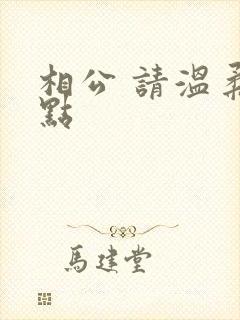 相公 請溫柔
點
馬建堂